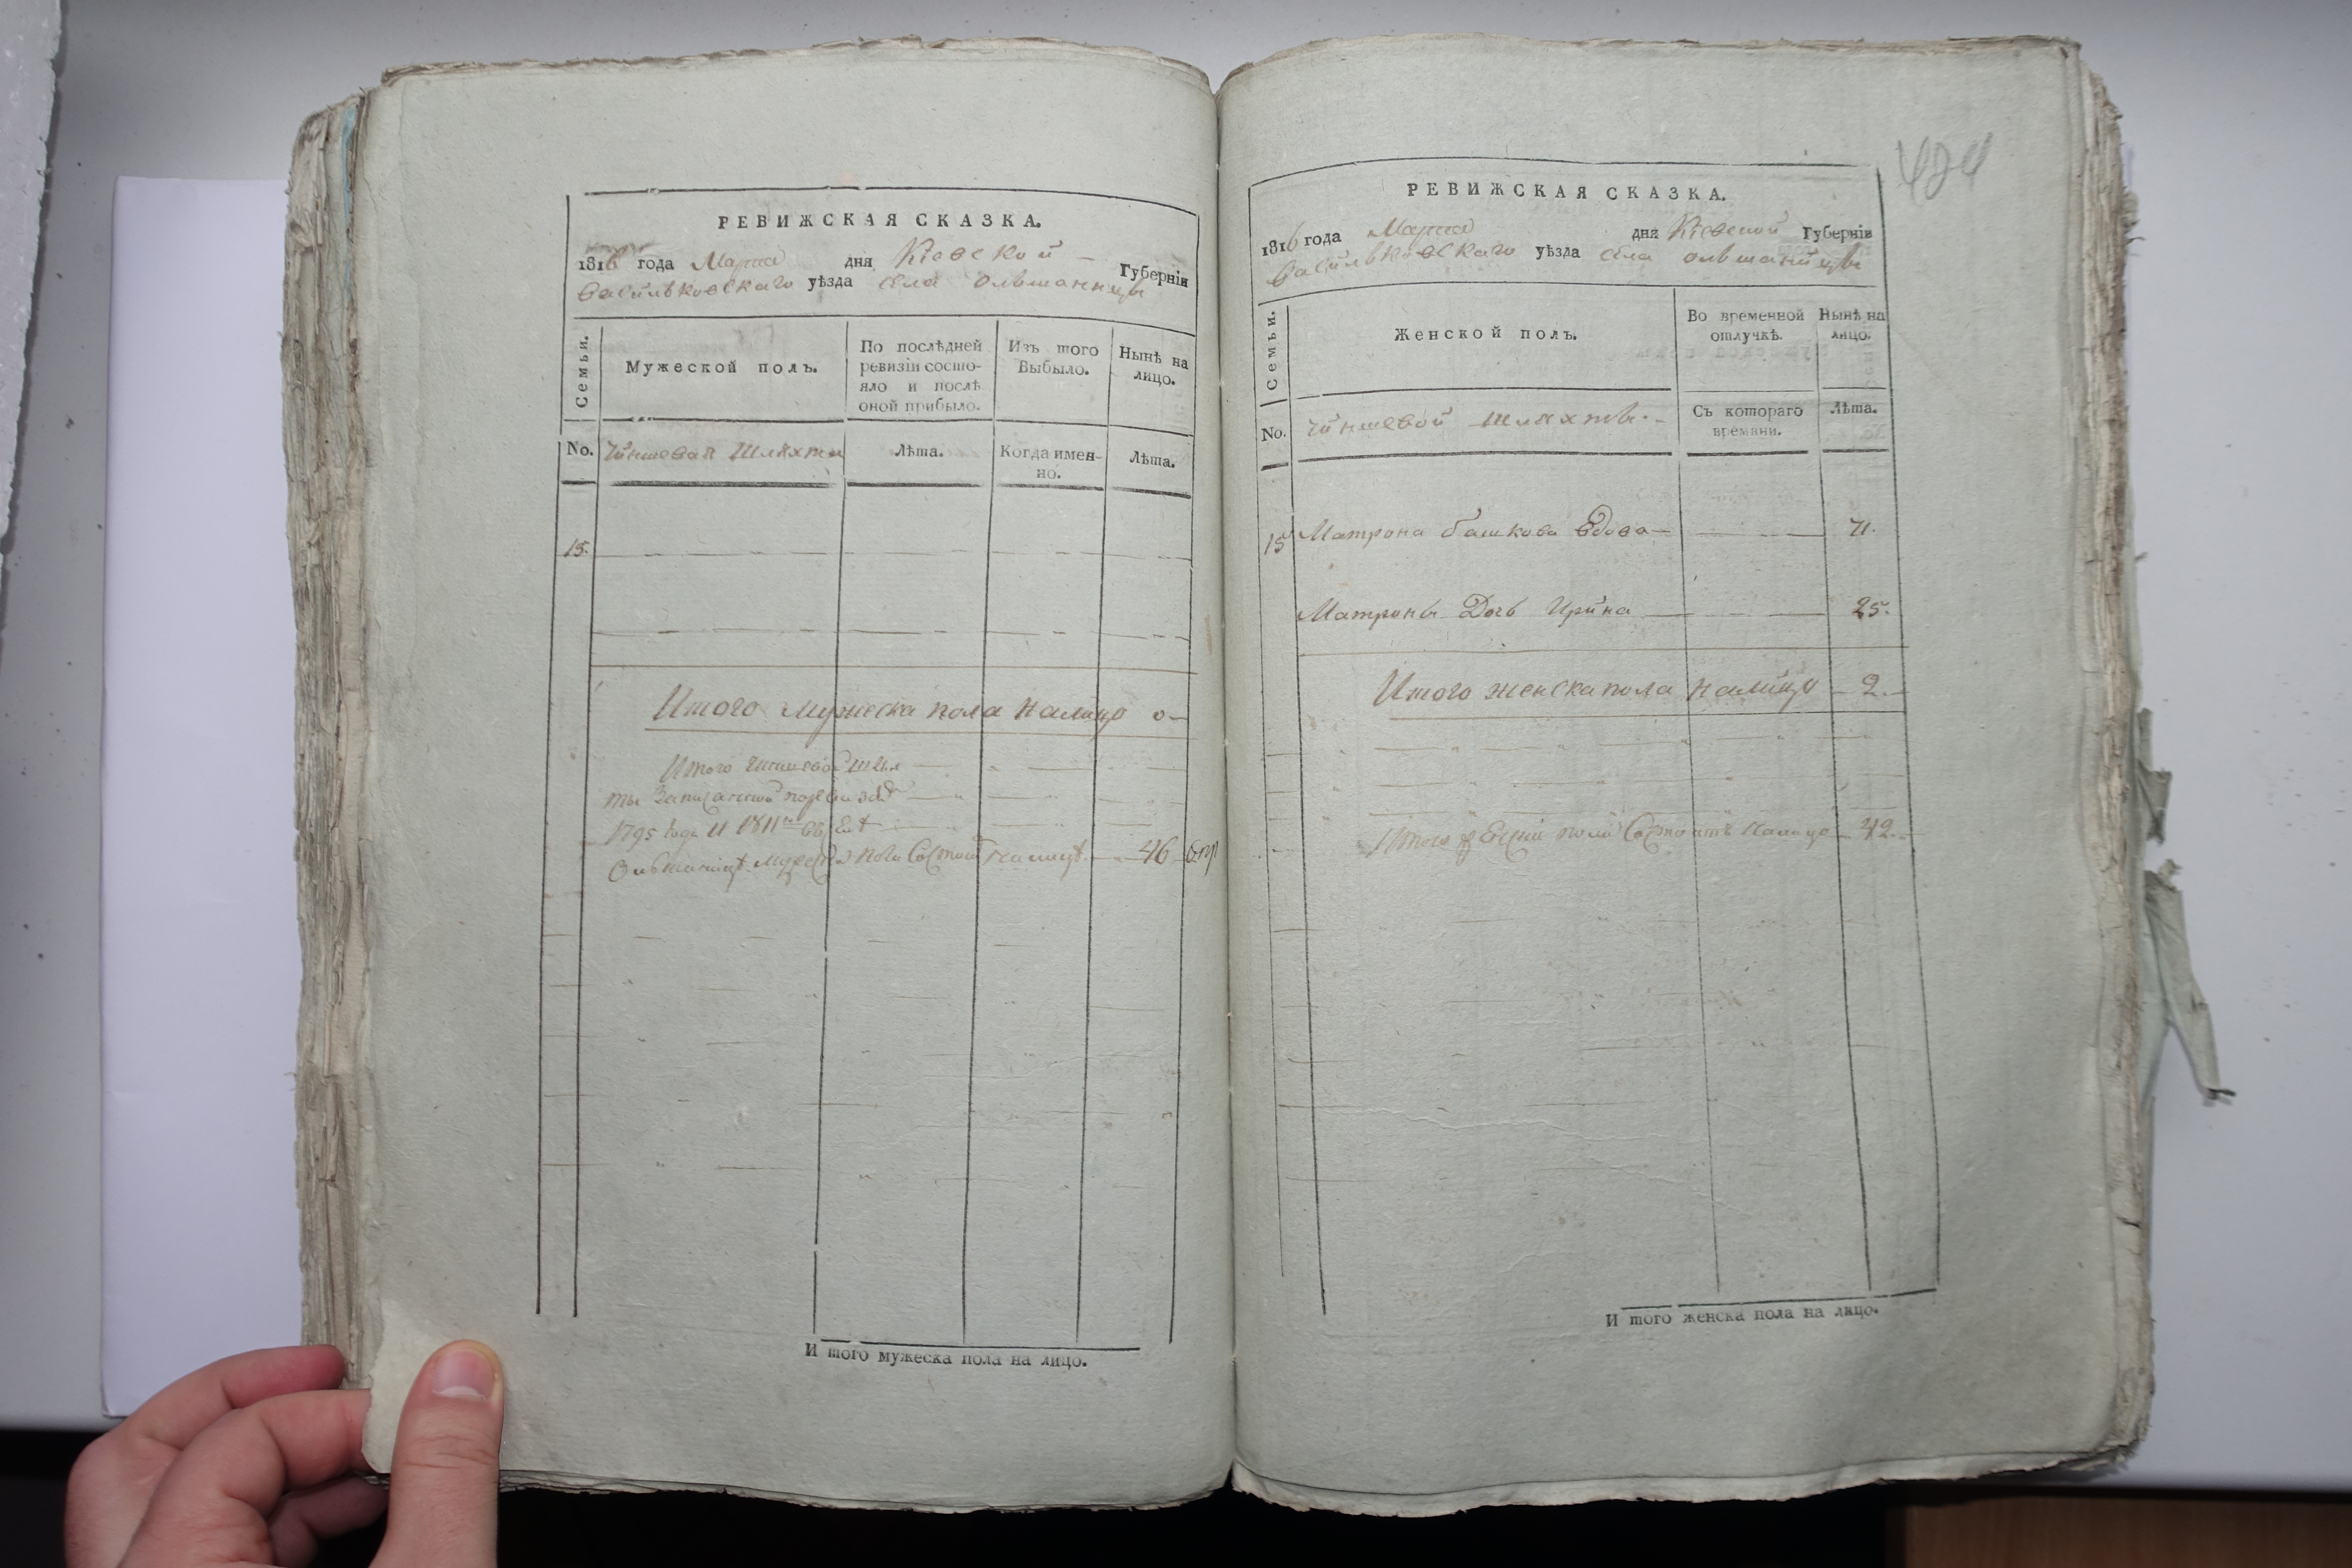 РЕВИЖСКАЯ СКАЗКА.
1816 года Марта дня Кіевской Губерніи
Васильковскаго уѣзда села ольшанницы
Семьи.
Мужеской полъ.
По послѣдней ревизіи состо-
яло и послѣ
оной прибыло.
Изъ того
Выбыло.
Нынѣ на
лицо.
No.
Чиншевая Шляхта
Лѣта.
Когда имен-
но.
Лѣта.
15.
Итого мужеска пола налицо 0
Итого чиншевой шлях
ты Записанной по ревизіи
1795 года и 1811го въ селѣ
Ольшаницѣ мужеска пола Состоит налицѣ 46
И того мужеска пола на лицо.
424
РЕВИЖСКАЯ СКАЗКА.
1816 года Марта дня Кіевской Губерніи
Васильковскаго уѣзда села ольшаницы
Семьи.
Женской полъ.
Во временной
отлучкѣ.
Нынѣ на
лицо.
No.
чиншевой шляхты
Съ котораго
времяни.
Лѣта.
15 Матрона башкова вдова 71.
Матроны Дочь Ирина 25.
Итого женска пола налицо 2.
Итого женска пола Состоитъ налицо 42.
И того женска пола на лицо.